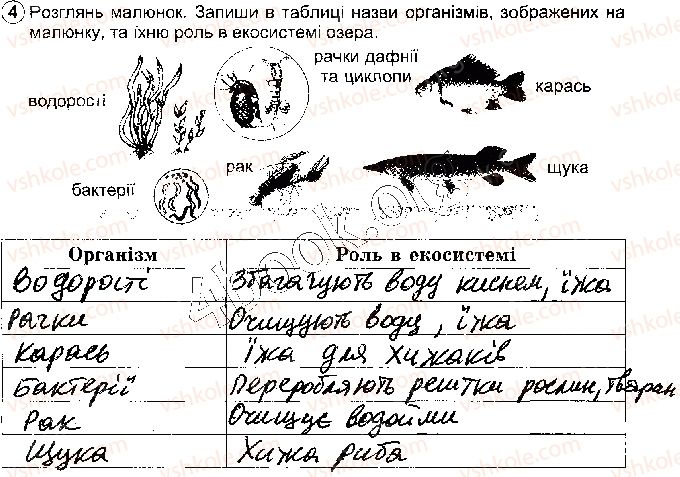 4 Розглянь малюнок. Запиши в таблиці назви організмів, зображених на
малюнку, та їхню роль в екосистемі озера.
рачки дафнії
та циклопи
водорості
карась
рак
щука
бактерії
Організм Роль в екосистемі
Водорості Збагачують воду киснем, їжа
Рачки Очищують воду, їжа
Карась їжа для хижаків
Бактерії Переробляють рештки рослин, тварин
Рак Очищує водойми
Щука Хижа риба
4book.org
vshkole.com